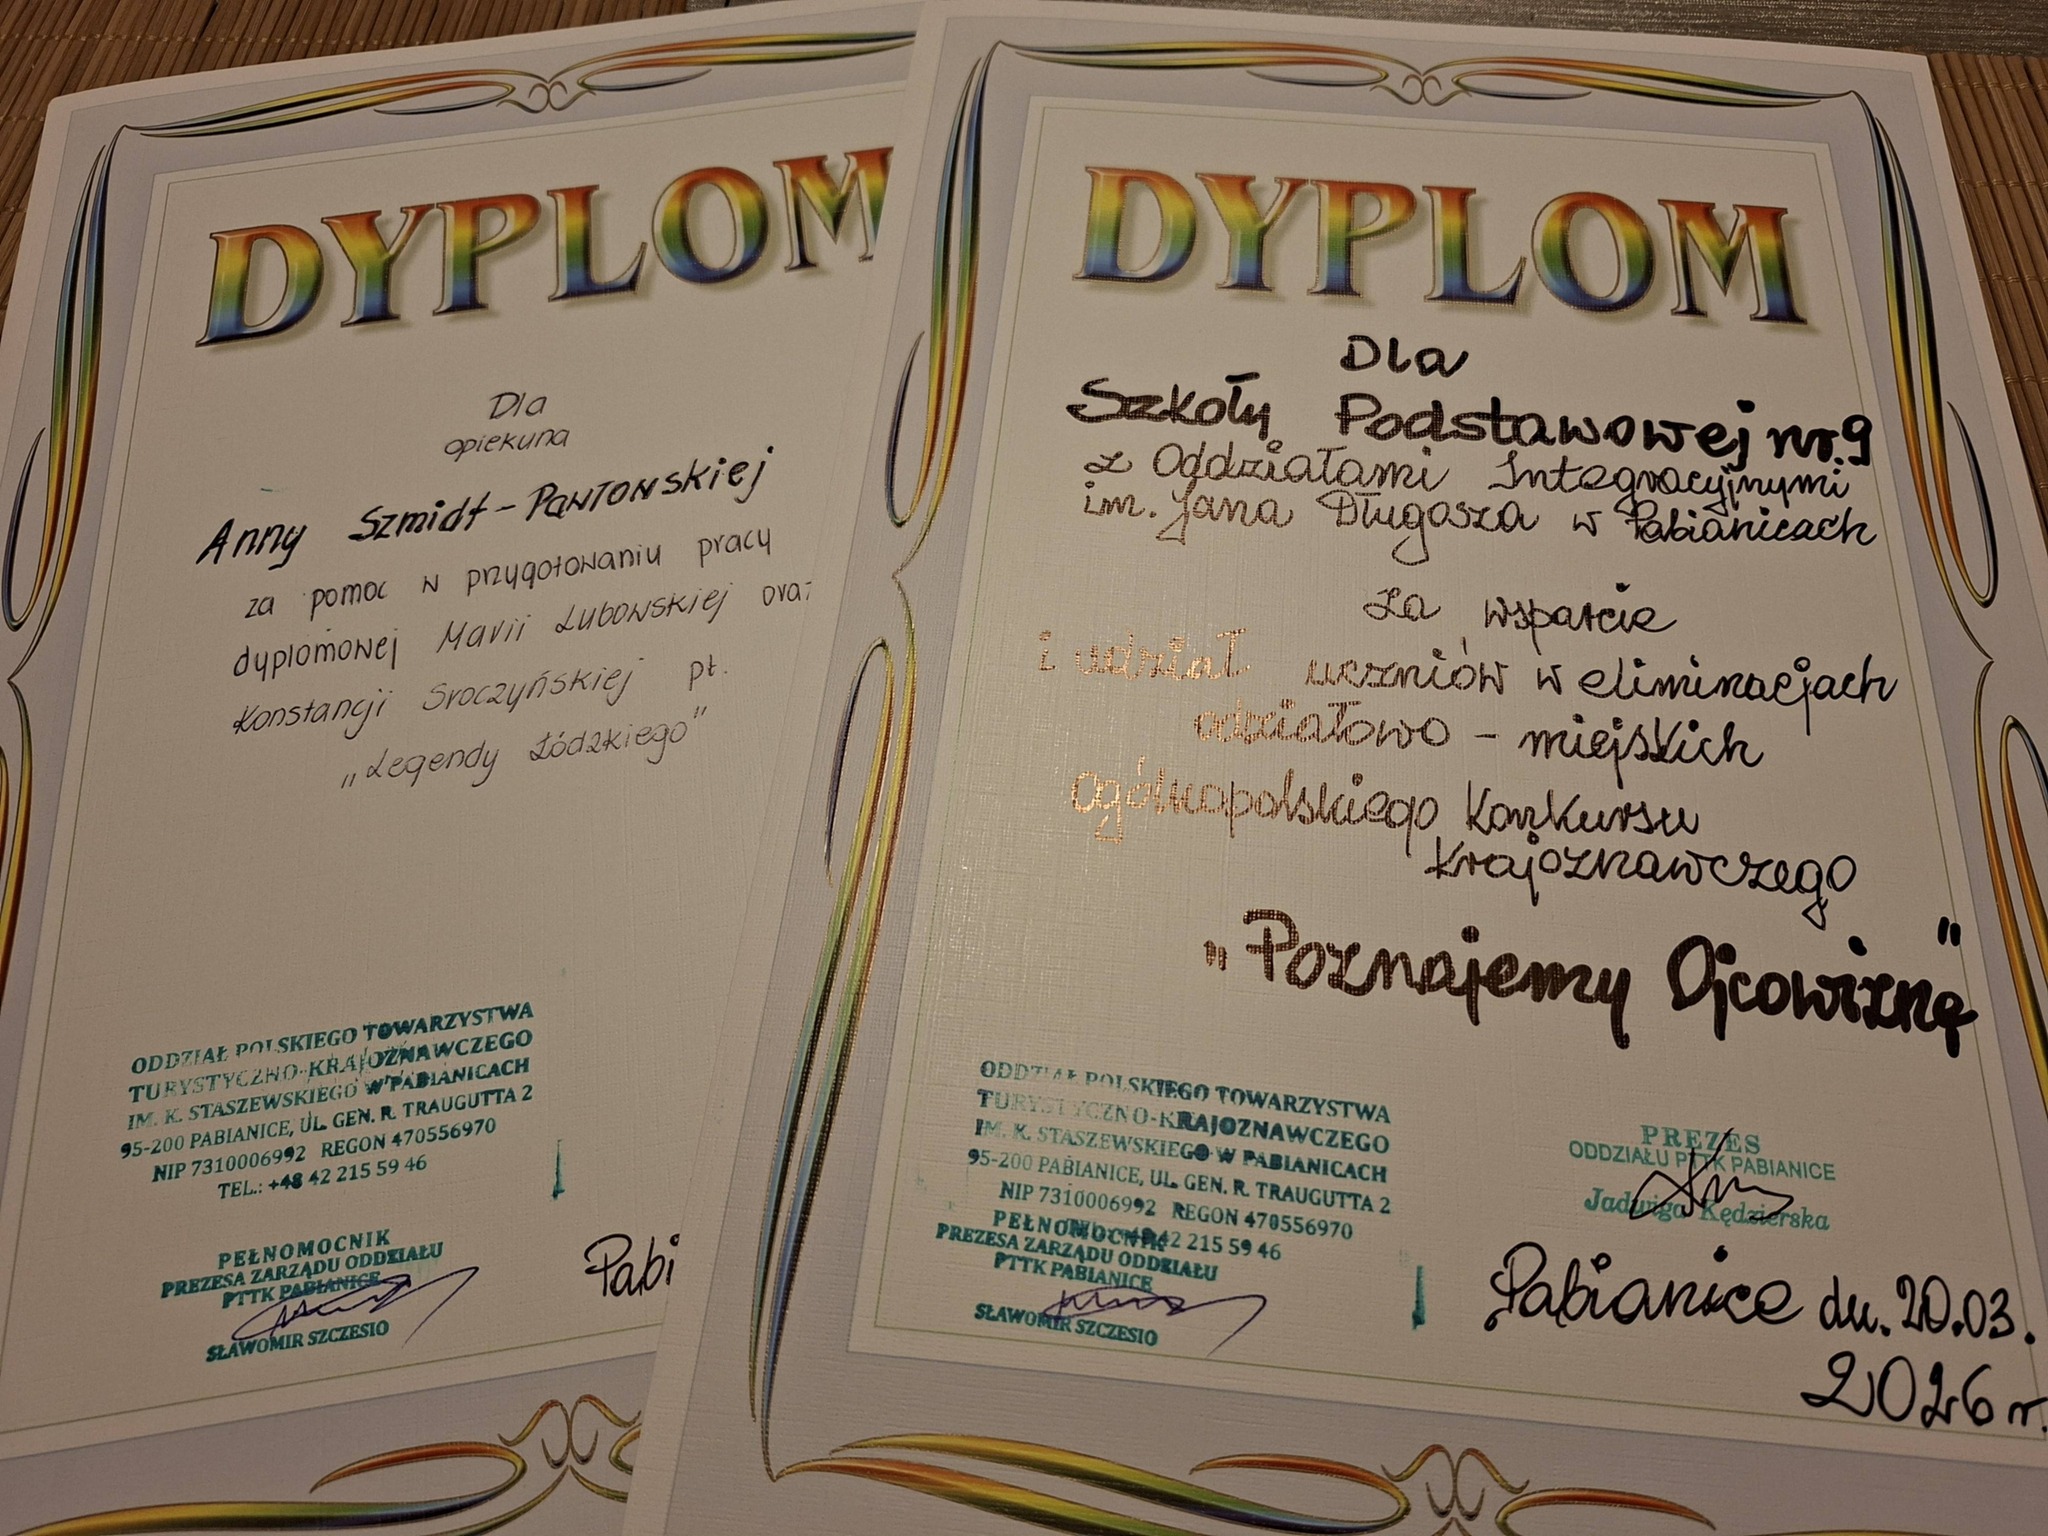 DYPLOM
Dla
opiekuna
Anny Szmidt-Pawłowskiej
za pomoc w przygotowaniu pracy
dyplomowej Marii Lubowskiej oraz
Konstancji Sroczyńskiej pt.
„Legendy Łódzkiego"
ODDZIAŁ POLSKIEGO TOWARZYSTWA
TURYSTYCZNO-KRAJOZNAWCZEGO
IM. K. STASZEWSKIEGO W PABIANICACH
95-200 PABIANICE, UL. GEN. R. TRAUGUTTA 2
NIP 7310006992 REGON 470556970
TEL.: +48 42 215 59 46
PEŁNOMOCNIK
PREZESA ZARZĄDU ODDZIAŁU
PTTK PABIANICE
SŁAWOMIR SZCZESIO
Pabi
DYPLOM
Dla
Szkoły Podstawowej nr. 9
z Oddziałami Integracyjnymi
im. Jana Długosza w Pabianicach
za wsparcie
i udział uczniów w eliminacjach
odziałowo - miejskich
ogólnopolskiego Konkursu
Krajoznawczego
„Poznajemy Ojcowiznę"
ODDZIAŁ POLSKIEGO TOWARZYSTWA
TURYSTYCZNO-KRAJOZNAWCZEGO
IM. K. STASZEWSKIEGO W PABIANICACH
95-200 PABIANICE, UL. GEN. R. TRAUGUTTA 2
NIP 7310006992 REGON 470556970
42 215 59 46
PEŁNOMOCNIK
PREZESA ZARZĄDU ODDZIAŁU
PTTK PABIANICE
SŁAWOMIR SZCZESIO
PREZES
ODDZIAŁU PTTK PABIANICE
Jadwiga Kędzierska
Pabianice dn. 20.03.
2026 r.